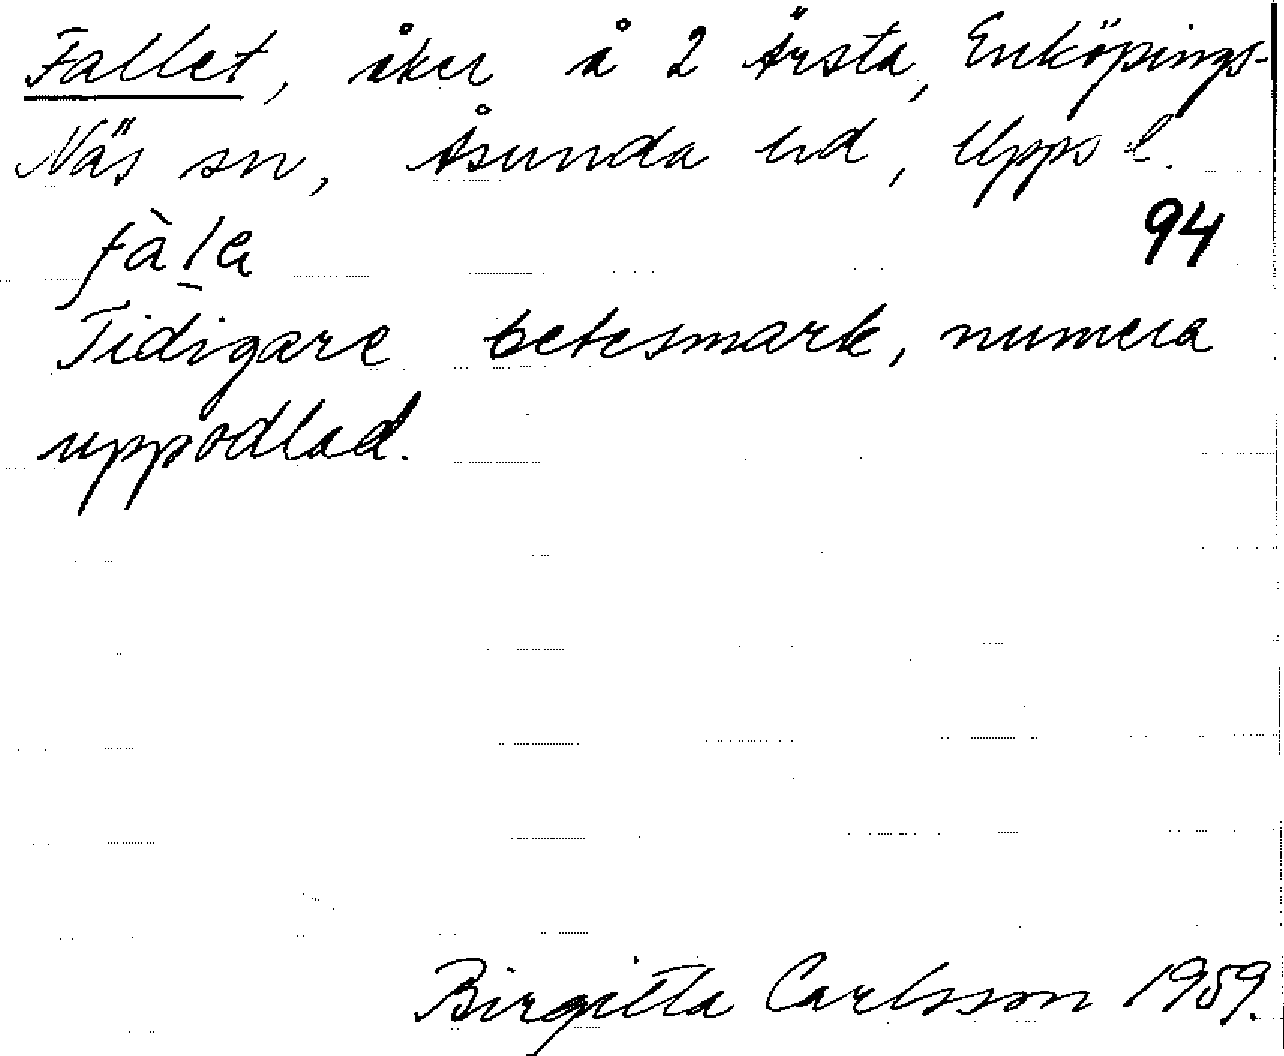 Fallet, åker å 2 Ärsta, Enköpings-
Näs sn, Åsunda hd, Upps l.
fàl̠a 94
Tidigare betesmark, numera
uppodlad.
Birgitta Carlsson 1959.